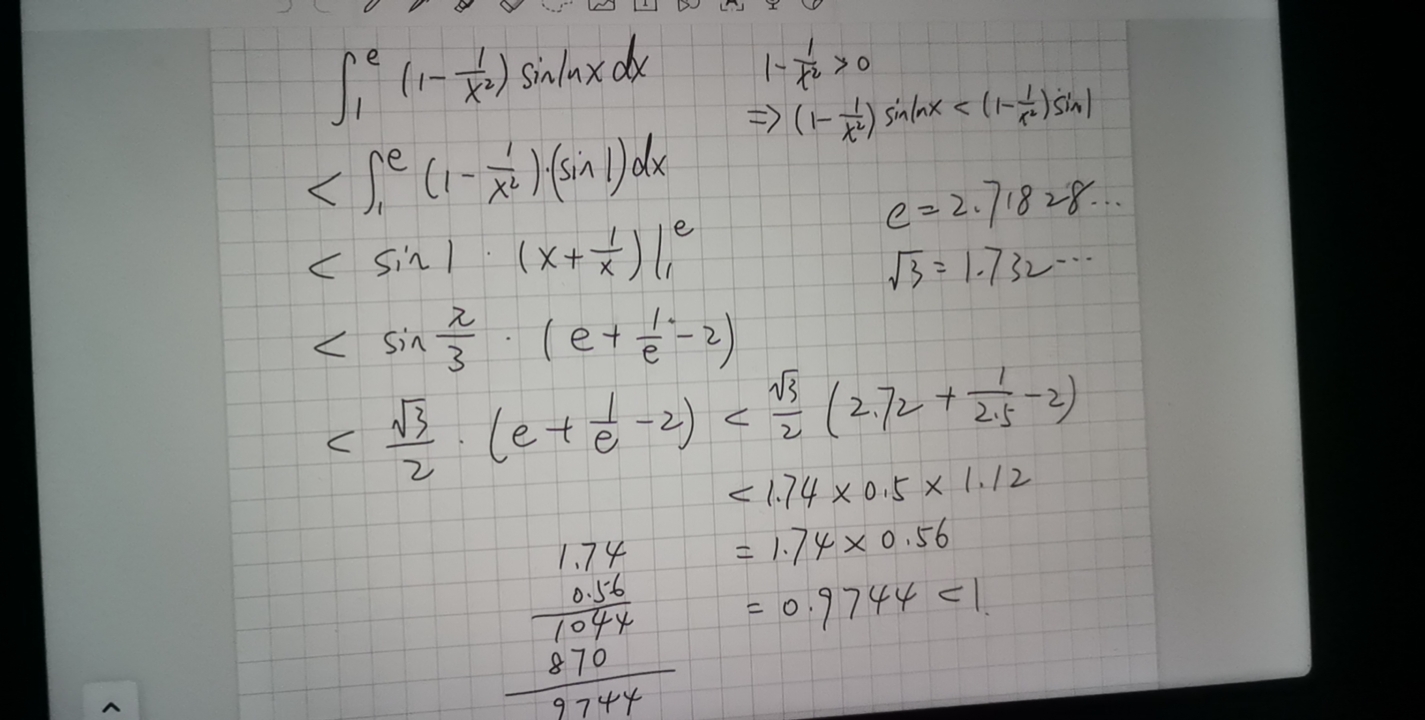 ∫₁ᵉ (1 - 1/x²) sinlnx dx
1 - 1/x² > 0
=> (1 - 1/x²) sinlnx < (1 - 1/x²) sin1
< ∫₁ᵉ (1 - 1/x²)·(sin1) dx
e = 2.71828...
< sin1 · (x + 1/x) |₁ᵉ
√3 = 1.732...
< sin π/3 · (e + 1/e - 2)
< √3/2 · (e + 1/e - 2) < √3/2 (2.72 + 1/2.5 - 2)
< 1.74 × 0.5 × 1.12
= 1.74 × 0.56
= 0.9744 < 1.
1.74
0.56
1044
870
9744